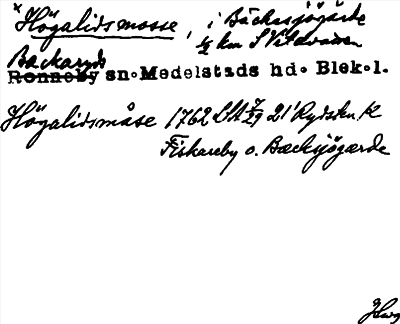 *Högalidsmosse, i Bäckasjögärde
½ km S
Backaryds
Ronneby sn. Medelstads hd. Blek.l.
Högalidsmåse 1762 LSA 21'
Fiskareby o. Backsjögärde